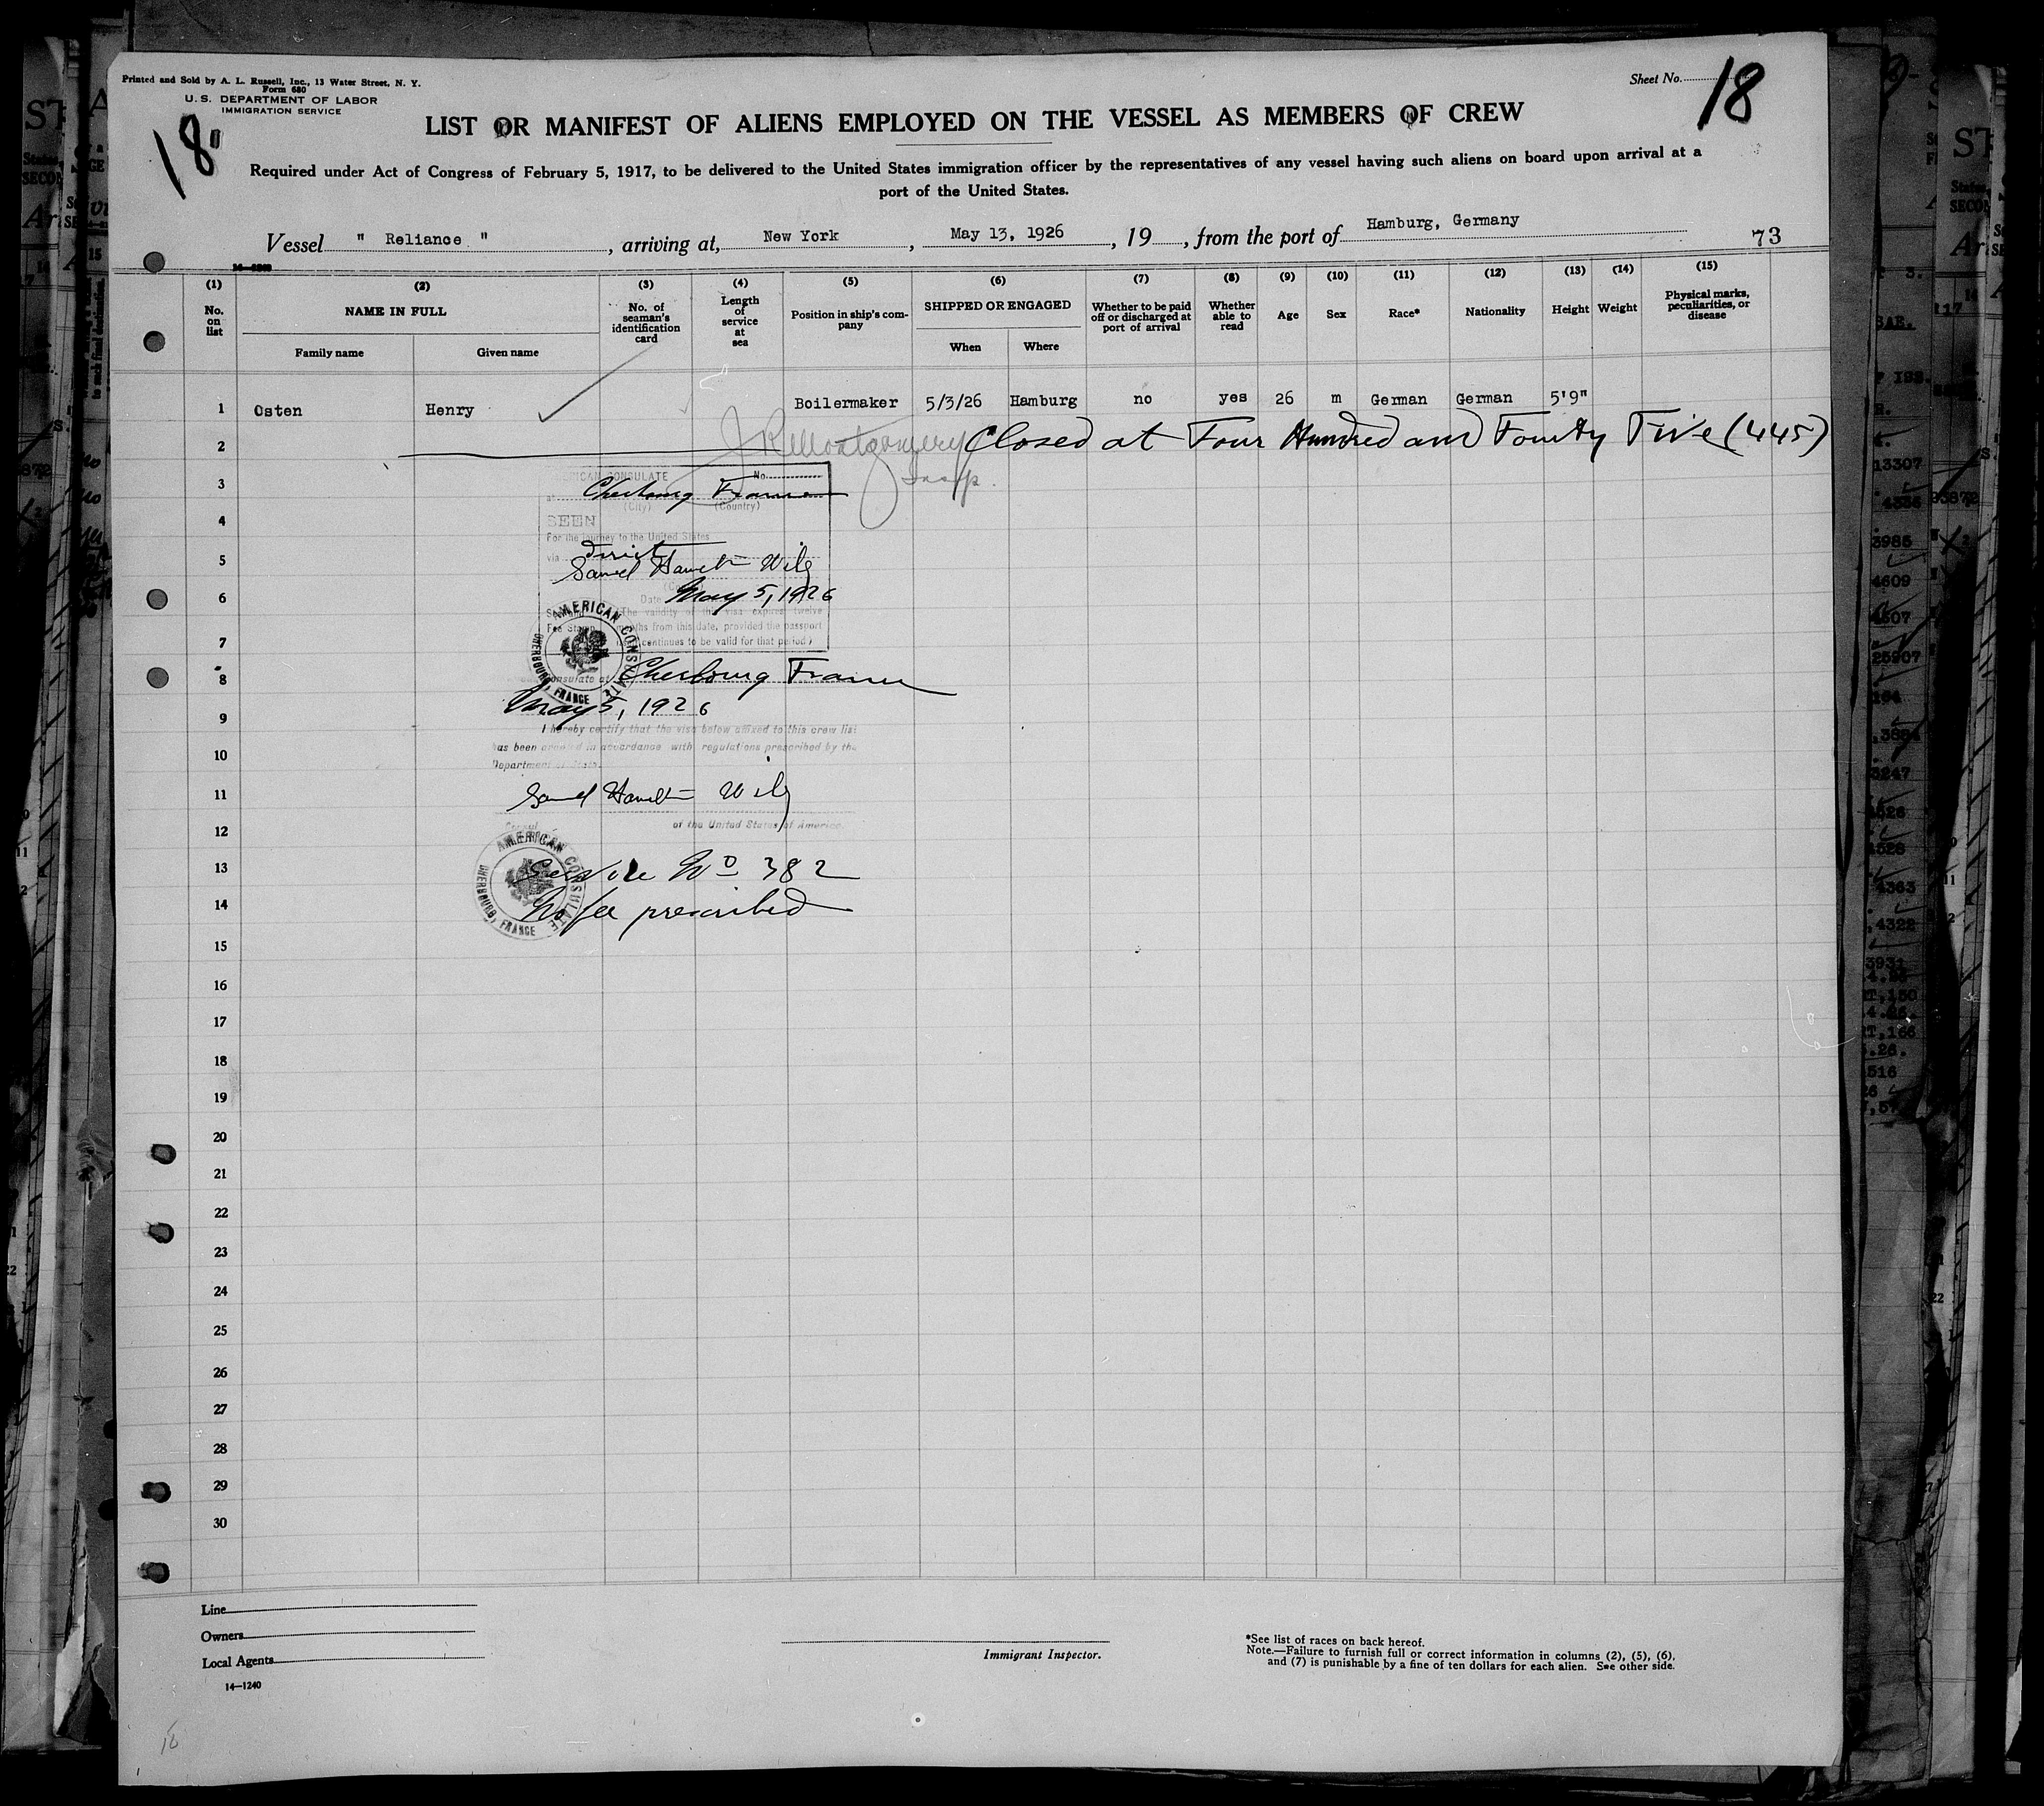 Printed and Sold by A. L. Russell, Inc., 13 Water Street, N. Y.
Form 680
U. S. DEPARTMENT OF LABOR
IMMIGRATION SERVICE
Sheet No. 18
18
LIST OR MANIFEST OF ALIENS EMPLOYED ON THE VESSEL AS MEMBERS OF CREW
Required under Act of Congress of February 5, 1917, to be delivered to the United States immigration officer by the representatives of any vessel having such aliens on board upon arrival at a
port of the United States.
Vessel " Reliance " , arriving at, New York , May 13, 1926 , 19 , from the port of Hamburg, Germany
73
14—1240
(1) No. on list
(2) NAME IN FULL
Family name
Given name
(3) No. of seaman's identification card
(4) Length of service at sea
(5) Position in ship's company
(6) SHIPPED OR ENGAGED
When
Where
(7) Whether to be paid off or discharged at port of arrival
(8) Whether able to read
(9) Age
(10) Sex
(11) Race*
(12) Nationality
(13) Height
(14) Weight
(15) Physical marks, peculiarities, or disease
1 Osten Henry Boilermaker 5/3/26 Hamburg no yes 26 m German German 5'9"
2 J R Montgomery Closed at Four Hundred and Fourty Five (445)
Insp.
3 AMERICAN CONSULATE No.
at Cherbourg France
(City) (Country)
4 SEEN
For the journey to the United States
via direct
5 Samuel Hamilton Wiley
6 Date May 5, 1926
(The validity of this visa expires twelve
Fee Stamp months from this date, provided the passport
7 continues to be valid for that period)
AMERICAN CONSULATE
CHERBOURG, FRANCE
8 Consulate at Cherbourg France
9 May 5, 1926
I hereby certify that the visa below affixed to this crew list
10 has been granted in accordance with regulations prescribed by the
Department of State.
11 Samuel Hamilton Wiley
12 Consul of the United States of America
AMERICAN CONSULATE
CHERBOURG, FRANCE
13 Service No 382
14 No fee prescribed
15
16
17
18
19
20
21
22
23
24
25
26
27
28
29
30
Line
Owners
Local Agents
14—1240
Immigrant Inspector.
*See list of races on back hereof.
Note.—Failure to furnish full or correct information in columns (2), (5), (6),
and (7) is punishable by a fine of ten dollars for each alien. See other side.